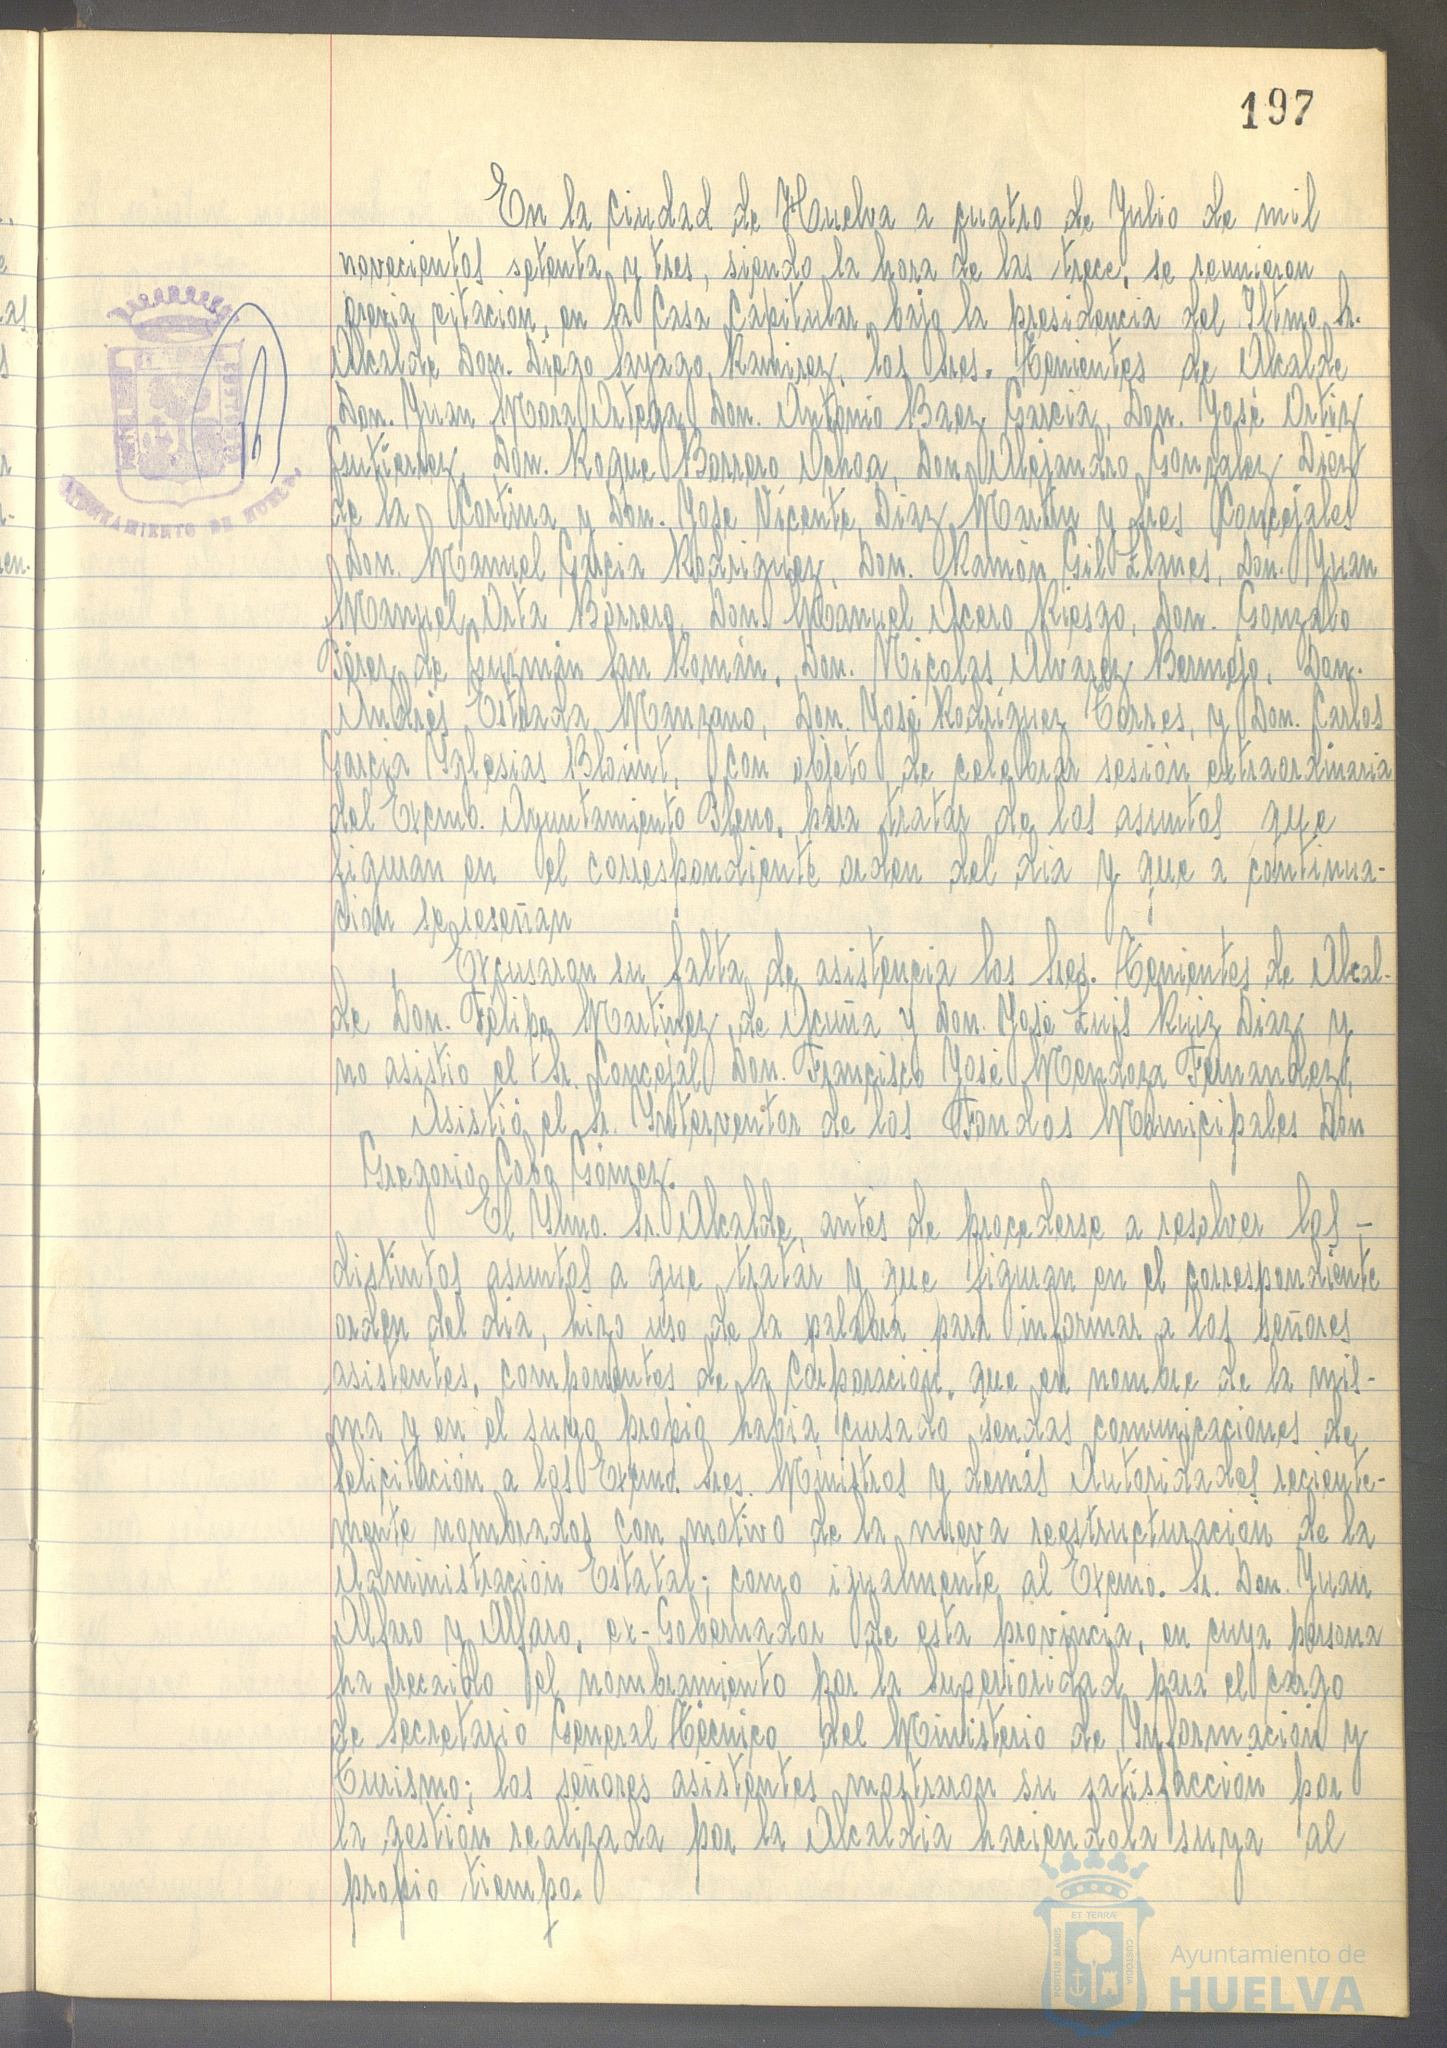 197
En la ciudad de Huelva a cuatro de Julio de mil
novecientos setenta y tres, siendo la hora de las trece, se reunieron
previa citacion, en la Casa Capitular, bajo la presidencia del Iltmo Sr.
Alcalde Don. Diego Sayago Ramirez, los Sres. Tenientes de Alcalde
Don. Juan Mora Ortega, Don. Antonio Baez Garcia, Don. José Ortiz
Gutierrez, Don. Roque Barrero Ochoa, Don Alejandro Gonzalez Diez
de la Cortina y Don. Jose Vicente Diaz Martin y Sres Concejales
Don. Manuel Garcia Rodriguez, Don. Ramón Gil Llanes, Don. Juan
Manuel Orta Borrero, Don. Manuel Acero Riesgo, Don. Gonzalo
Pérez de Guzmán San Román, Don. Nicolas Alvarez Bermejo, Don.
Andrés Estrada Manzano, Don. José Rodriguez Torres, y Don. Carlos
Garcia Yglesias Blount, con objeto de celebrar sesión extraordinaria
del Excmo. Ayuntamiento Pleno, para tratar de los asuntos que
figuran en el correspondiente orden del dia y que a continua-
cion se reseñan
Excusaron su falta de asistencia los Sres. Tenientes de Alcal-
de Don. Felipe Martinez de Acuña y Don. José Luis Ruiz Diaz y
no asistio el Sr. Concejal Don. Francisco José Mendoza Fernandez,
Asistió el Sr. Interventor de los Fondos Municipales Don
Gregorio Cobo Gómez.
El Ylmo. Sr. Alcalde, antes de procederse a resolver los -
distintos asuntos a que tratar y que figuran en el correspondiente
orden del dia, hizo uso de la palabra para informar a los señores
asistentes, componentes de la Corporacion, que en nombre de la mis-
ma y en el suyo propio habia cursado sendas comunicaciones de
felicitación a los Excmo. Sres. Ministros y demás Autoridades reciente-
mente nombrados con motivo de la nueva reestructuracion de la
Administración Estatal; como igualmente al Excmo. Sr. Don. Juan
Alfaro y Alfaro, ex-Gobernador de esta provincia, en cuya persona
ha recaido el nombramiento por la Superioridad para el cargo
de Secretario General Técnico del Ministerio de Informacion y
Turismo; los señores asistentes mostraron su satisfaccion por
la gestión realizada por la Alcaldia haciendola suya al
propio tiempo.
AYUNTAMIENTO DE HUELVA
PORTUS MARIS ET TERRAE CUSTODIA
Ayuntamiento de
HUELVA